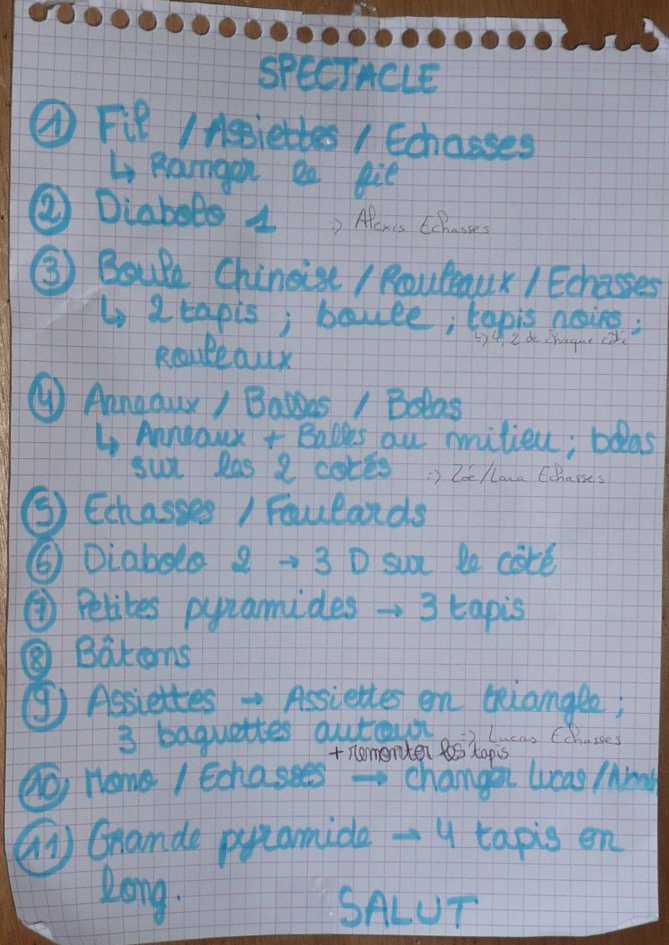 SPECTACLE
① Fil / Assiettes / Echasses
↳ Ranger le fil
② Diabolo 1 → Alexis Echasses
③ Boule Chinoise / Rouleaux / Echasses
↳ 2 tapis ; boule ; tapis noirs ;
↳ 4, 2 de chaque côté
rouleaux
④ Anneaux / Balles / Bolas
↳ Anneaux + Balles au milieu ; bolas
sur les 2 cotés → Zoé/Lana Echasses
⑤ Echasses / Foulards
⑥ Diabolo 2 → 3 D sur le côté
⑦ Petites pyramides → 3 tapis
⑧ Bâtons
⑨ Assiettes → Assiettes en triangle ;
3 baguettes autour → Lucas Echasses
+ remonter les tapis
⑩ Momo / Echasses → changer Lucas /
⑪ Grande pyramide → 4 tapis en
long.
SALUT